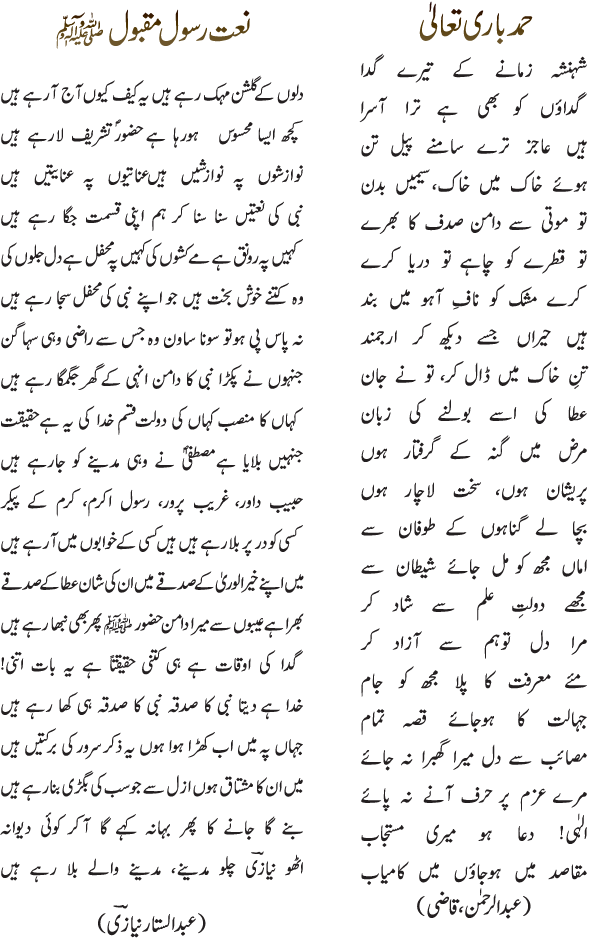 حمد باری تعالیٰ
شہنشہ زمانے کے تیرے گدا
گداؤں کو بھی ہے ترا آسرا
ہیں عاجز ترے سامنے پیل تن
ہوئے خاک میں خاک، سیمیں بدن
تو موتی سے دامن صدف کا بھرے
تو قطرے کو چاہے تو دریا کرے
کرے مشک کو نافِ آہو میں بند
ہیں حیراں جسے دیکھ کر ارجمند
تنِ خاک میں ڈال کر، تو نے جان
عطا کی اسے بولنے کی زبان
مرض میں گنہ کے گرفتار ہوں
پریشان ہوں، سخت لاچار ہوں
بچا لے گناہوں کے طوفان سے
اماں مجھ کو مل جائے شیطان سے
مجھے دولتِ علم سے شاد کر
مرا دل توہم سے آزاد کر
مئے معرفت کا پلا مجھ کو جام
جہالت کا ہوجائے قصہ تمام
مصائب سے دل میرا گھبرا نہ جائے
مرے عزم پر حرف آنے نہ پائے
الٰہی! دعا ہو میری مستجاب
مقاصد میں ہوجاؤں میں کامیاب
(عبدالرحمٰن، قاضی)
نعت رسول مقبول ﷺ
دلوں کے گلشن مہک رہے ہیں یہ کیف کیوں آج آرہے ہیں
کچھ ایسا محسوس ہورہا ہے حضورؐ تشریف لارہے ہیں
نوازشوں پہ نوازشیں ہیں عنایتوں پہ عنایتیں ہیں
نبی کی نعتیں سنا سنا کر ہم اپنی قسمت جگا رہے ہیں
کہیں پہ رونق ہے مے کشوں کی کہیں پہ محفل ہے دل جلوں کی
وہ کتنے خوش بخت ہیں جو اپنے نبی کی محفل سجا رہے ہیں
نہ پاس پی ہو تو سونا ساون وہ جس سے راضی وہی سہاگن
جنہوں نے پکڑا نبی کا دامن انہی کے گھر جگمگا رہے ہیں
کہاں کا منصب کہاں کی دولت قسم خدا کی یہ ہے حقیقت
جنہیں بلایا ہے مصطفیٰؐ نے وہی مدینے کو جارہے ہیں
حبیب داور، غریب پرور، رسول اکرم، کرم کے پیکر
کسی کو در پر بلا رہے ہیں ہیں کسی کے خوابوں میں آرہے ہیں
میں اپنے خیر الوریٰ کے صدقے میں ان کی شان عطا کے صدقے
بھرا ہے عیبوں سے میرا دامن حضور ﷺ پھر بھی نبھا رہے ہیں
گدا کی اوقات ہے ہی کتنی حقیقتاً ہے یہ بات اتنی!
خدا ہے دیتا نبی کا صدقہ نبی کا صدقہ ہی کھا رہے ہیں
جہاں پہ میں اب کھڑا ہوا ہوں یہ ذکر سرور کی برکتیں ہیں
میں ان کا مشتاق ہوں ازل سے جو سب کی بگڑی بنا رہے ہیں
بنے گا جانے کا پھر بہانہ کہے گا آکر کوئی دیوانہ
اٹھو نیازیؔ چلو مدینے، مدینے والے بلا رہے ہیں
(عبدالستار نیازیؔ)